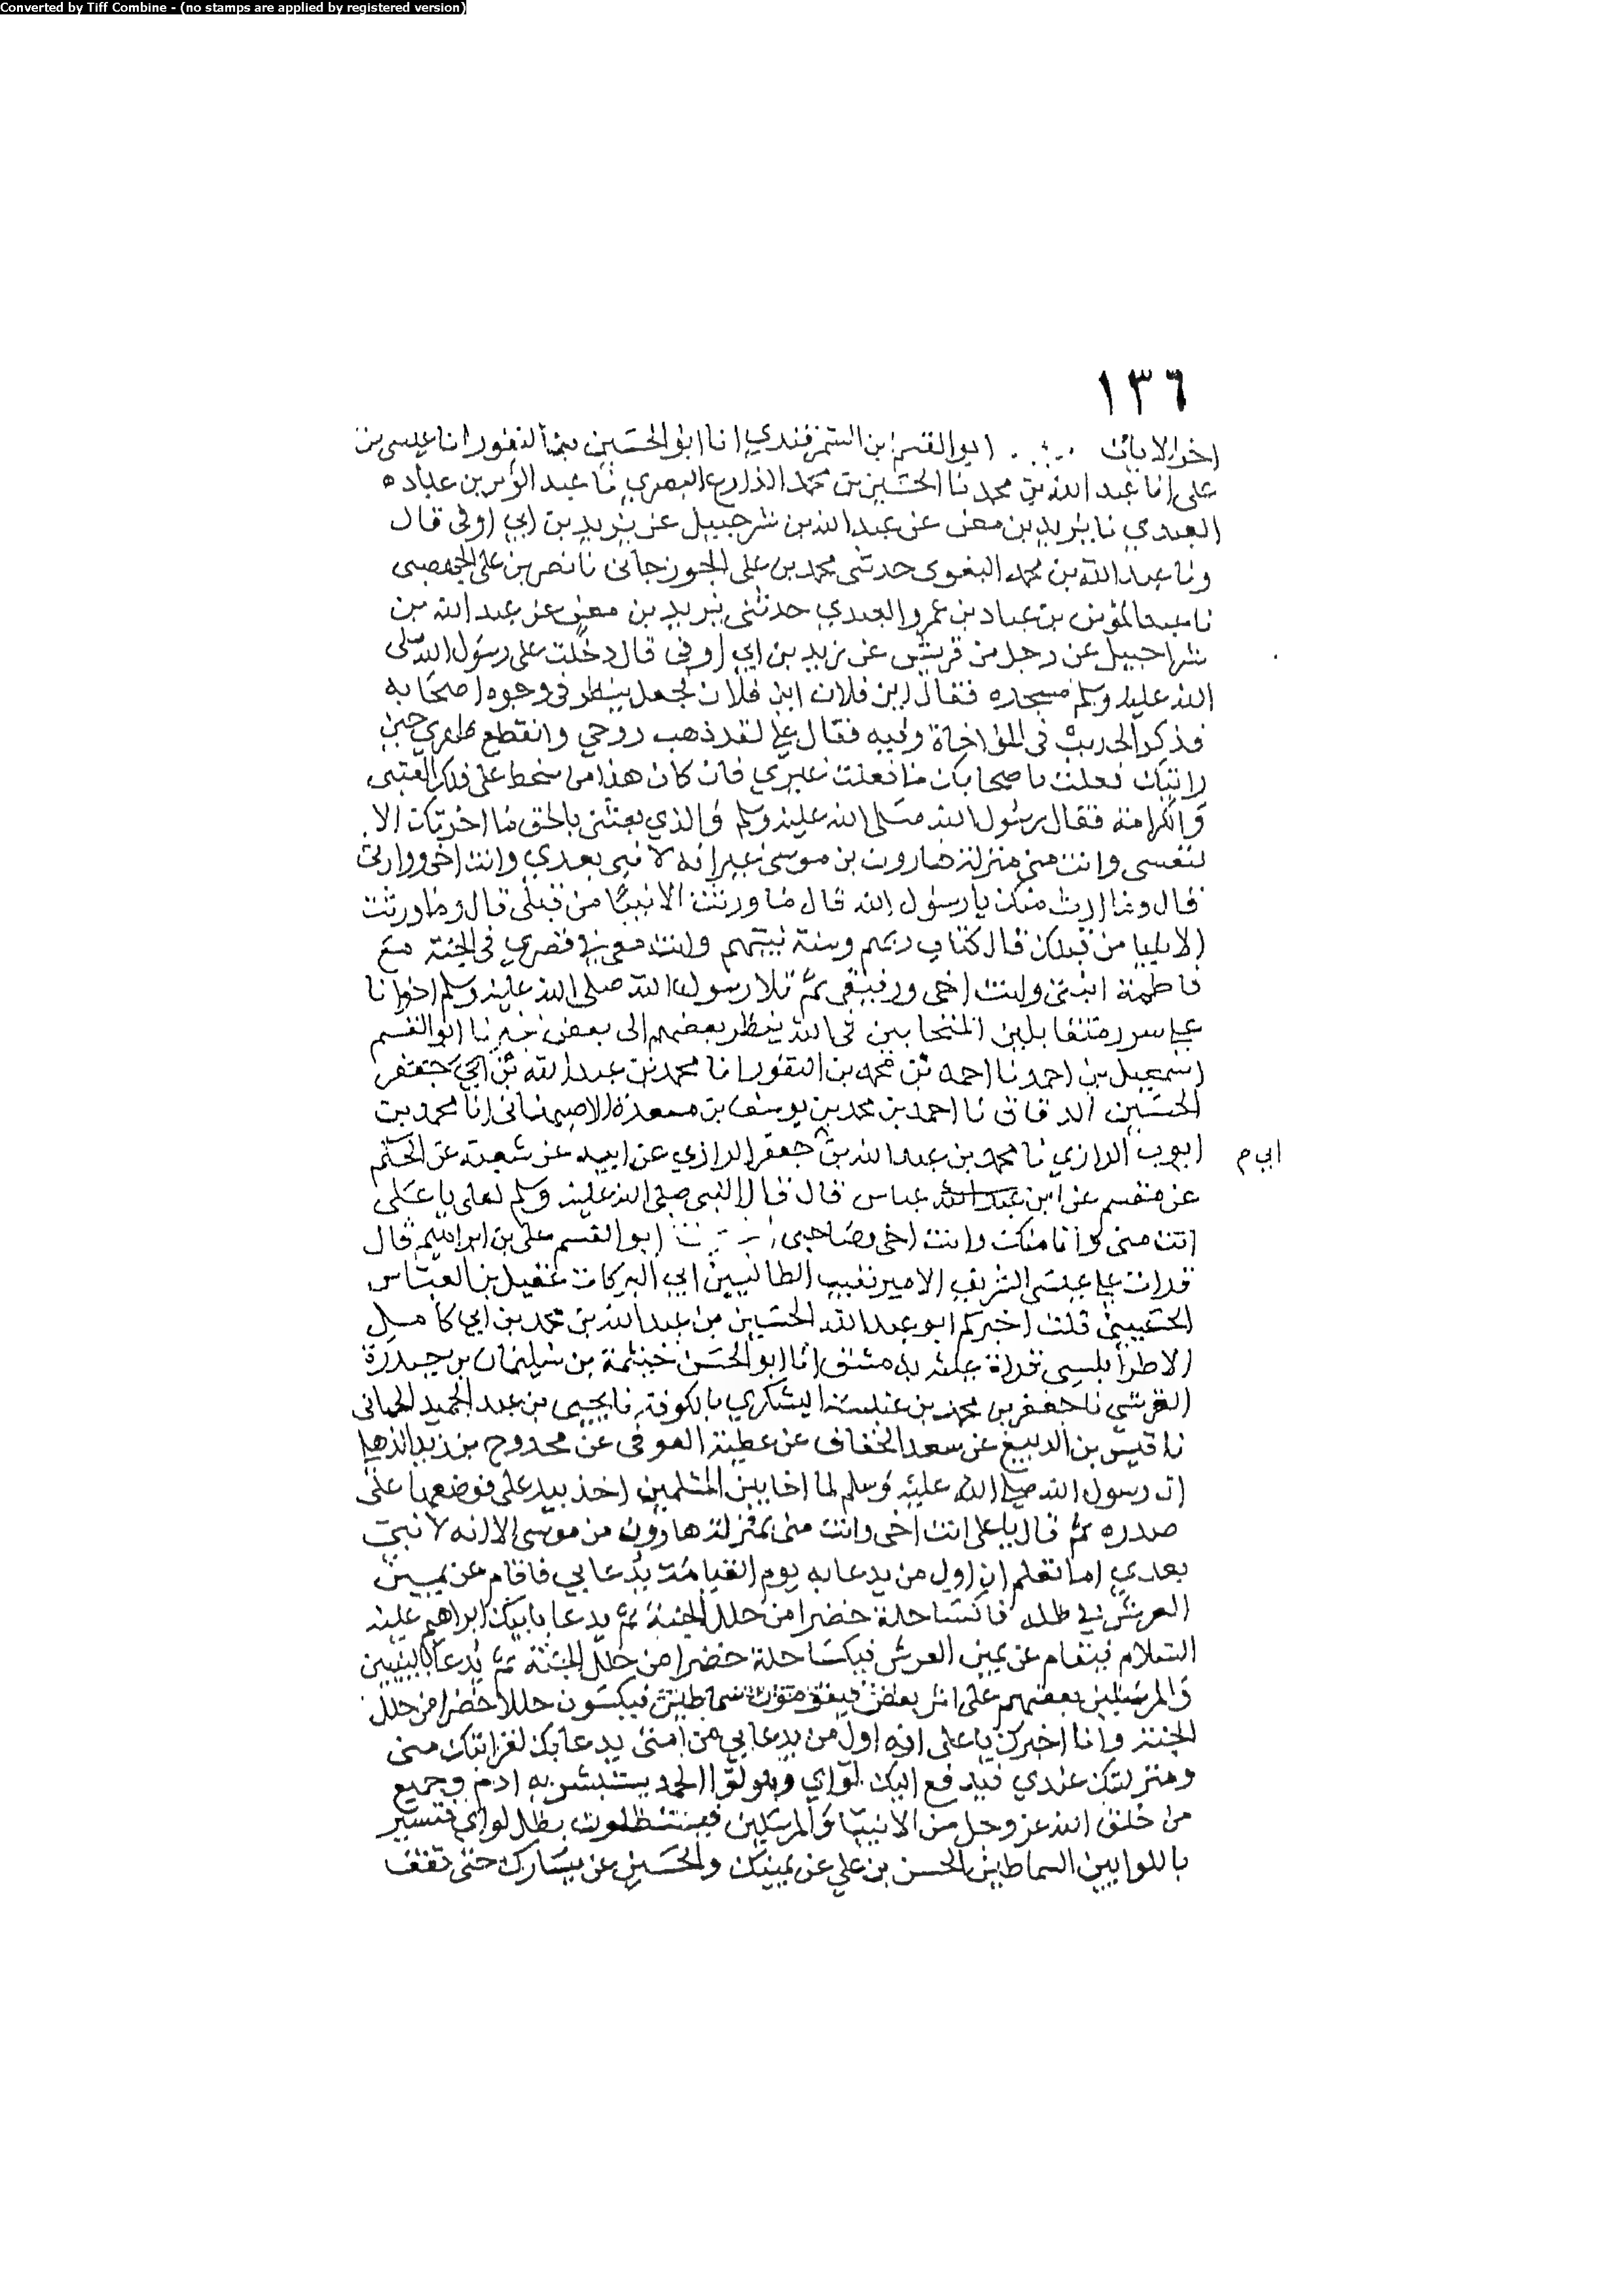 Converted by Tiff Combine - (no stamps are applied by registered version)
١٣٦
اخر الابيات ابو القسم بن السمرقندي انا ابو الحسين بن النقور انا عيسى بن
على انا عبد الله بن محمد نا الحسين بن محمد الذارع البصري نا عبد المومن بن عباده
العبدي نا يزيد بن معن عن عبد الله بن شرحبيل عن يزيد بن ابي اوفى قال
ونا عبد الله بن محمد البغوى حدثنى محمد بن على الجوزجانى نا نصر بن على الجهضمى
نا عبد المؤمن بن عباد بن عمرو العبدي حدثنى يزيد بن معن عن عبد الله بن
شراحبيل عن رجل من قريش عن زيد بن ابي اوفى قال دخلت على رسول الله صلى
الله عليه وسلم مسجده فقال اين فلان اين فلان فجعل ينظر فى وجوه اصحابه
فذكر الحديث فى المؤاخاة وفيه فقال علي لقد ذهب روحي وانقطع ظهري حين
رايتك فعلت باصحابك ما فعلت غيري فان كان هذا من سخط على فلك العتبى
والكرامة فقال رسول الله صلى الله عليه وسلم والذي بعثنى بالحق ما اخرتك الا
لنفسى وانت منى منزلة هارون بن موسى غير انه لا نبى بعدي وانت اخى ووارثى
قال وما ارث منك يا رسول الله قال ما ورثت الانبيا من قبلى قال وما ورثت
الانبيا من قبلك قال كتاب ربهم وسنة نبيهم وانت معى في قصري فى الجنة مع
فاطمة ابنتى وانت اخى ورفيقى ثم تلا رسول الله صلى الله عليه وسلم اخوانا
علي سرر متقابلين المتحابين فى الله ينظر بعضهم الى بعض خبرنا ابو القسم
اسمعيل بن احمد نا احمد بن محمد بن النقور انا محمد بن عبد الله بن ابي جعفر
الحسين الدقاق نا احمد بن محمد بن يوسف بن مسعدة الاصبهانى انا محمد بن
ايوب الرازي نا محمد بن عبد الله بن جعفر الرازي عن ابيه عن شعبة عن الحكم
ابي م
عن مقسم عن ابن عبد الله عباس قال قال النبى صلى الله عليه وسلم لعلى يا على
انت منى وانا منك وانت اخى وصاحبى ابو القسم على بن ابراهيم قال
قرات علي عمى الشريف الامير نقيب الطالبيين ابي البركات عقيل بن العباس
الحسينى قلت اخبركم ابو عبد الله الحسين بن عبد الله بن محمد بن ابي كامل
الاطرابلسى قراة عليه بدمشق انا ابو الحسن خيثمة بن سليمان بن حيدرة
القرشي نا جعفر بن محمد بن عنبسة اليشكري بالكوفة نا يحيى بن عبد الحميد الحمانى
نا قيس بن الربيع عن سعد الخفاف عن عطية العوفى عن محدوج بن زيد الذهلى
ان رسول الله صلى الله عليه وسلم لما اخا بين المسلمين اخذ بيد على فوضعها على
صدره ثم قال يا على انت اخى وانت منى بمنزلة هارون من موسى الا انه لا نبى
بعدي اما تعلم ان اول من يدعا به يوم القيامة يدعا بي فاقام عن يمين
العرش في ظله فاكسا حلة خضرا من حلل الجنة ثم يدعا بابيك ابراهيم عليه
السلام فيقام عن يمين العرش فيكسا حلة خضرا من حلل الجنة ثم يدعا بالنبيين
والمرسلين بعضهم على اثر بعض فيقومون سماطين فيكسون حللا خضرا من حلل
الجنة وانا اخبرك يا على انه اول من يدعا بي من امتى يدعا بك لقرابتك منى
ومنزلتك عندي فيدفع اليك لوائي وهو لوا الحمد يستبشر به ادم وجميع
من خلق الله عز وجل من الانبيا والمرسلين فيستظلون بظل لوائي فتسير
باللوا بين السماطين الحسن بن علي عن يمينك والحسين عن يسارك حتى تقف